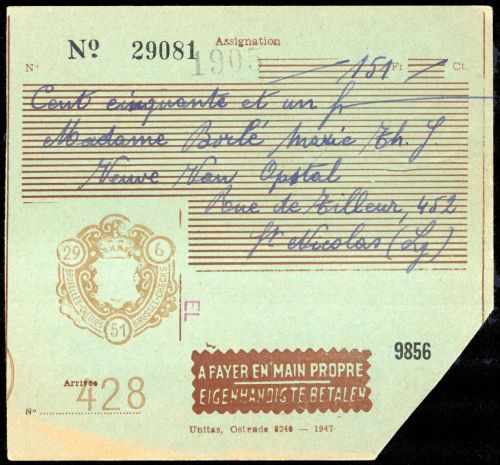 Assignation
No 29081
1905
N° 151 Fr Ct.
Cent cinquante et un fr
Madame Borlé Marie Th. J.
Veuve Van Opstal
Rue de Tilleur, 452
St Nicolas (Lg)
29 6
BRUXELLES-CHEQUES BRUSSEL-CHECKS
51
EL
9856
A PAYER EN MAIN PROPRE
EIGENHANDIG TE BETALEN
Arrivée
N° 428
Unitas, Ostende 8240 — 1947